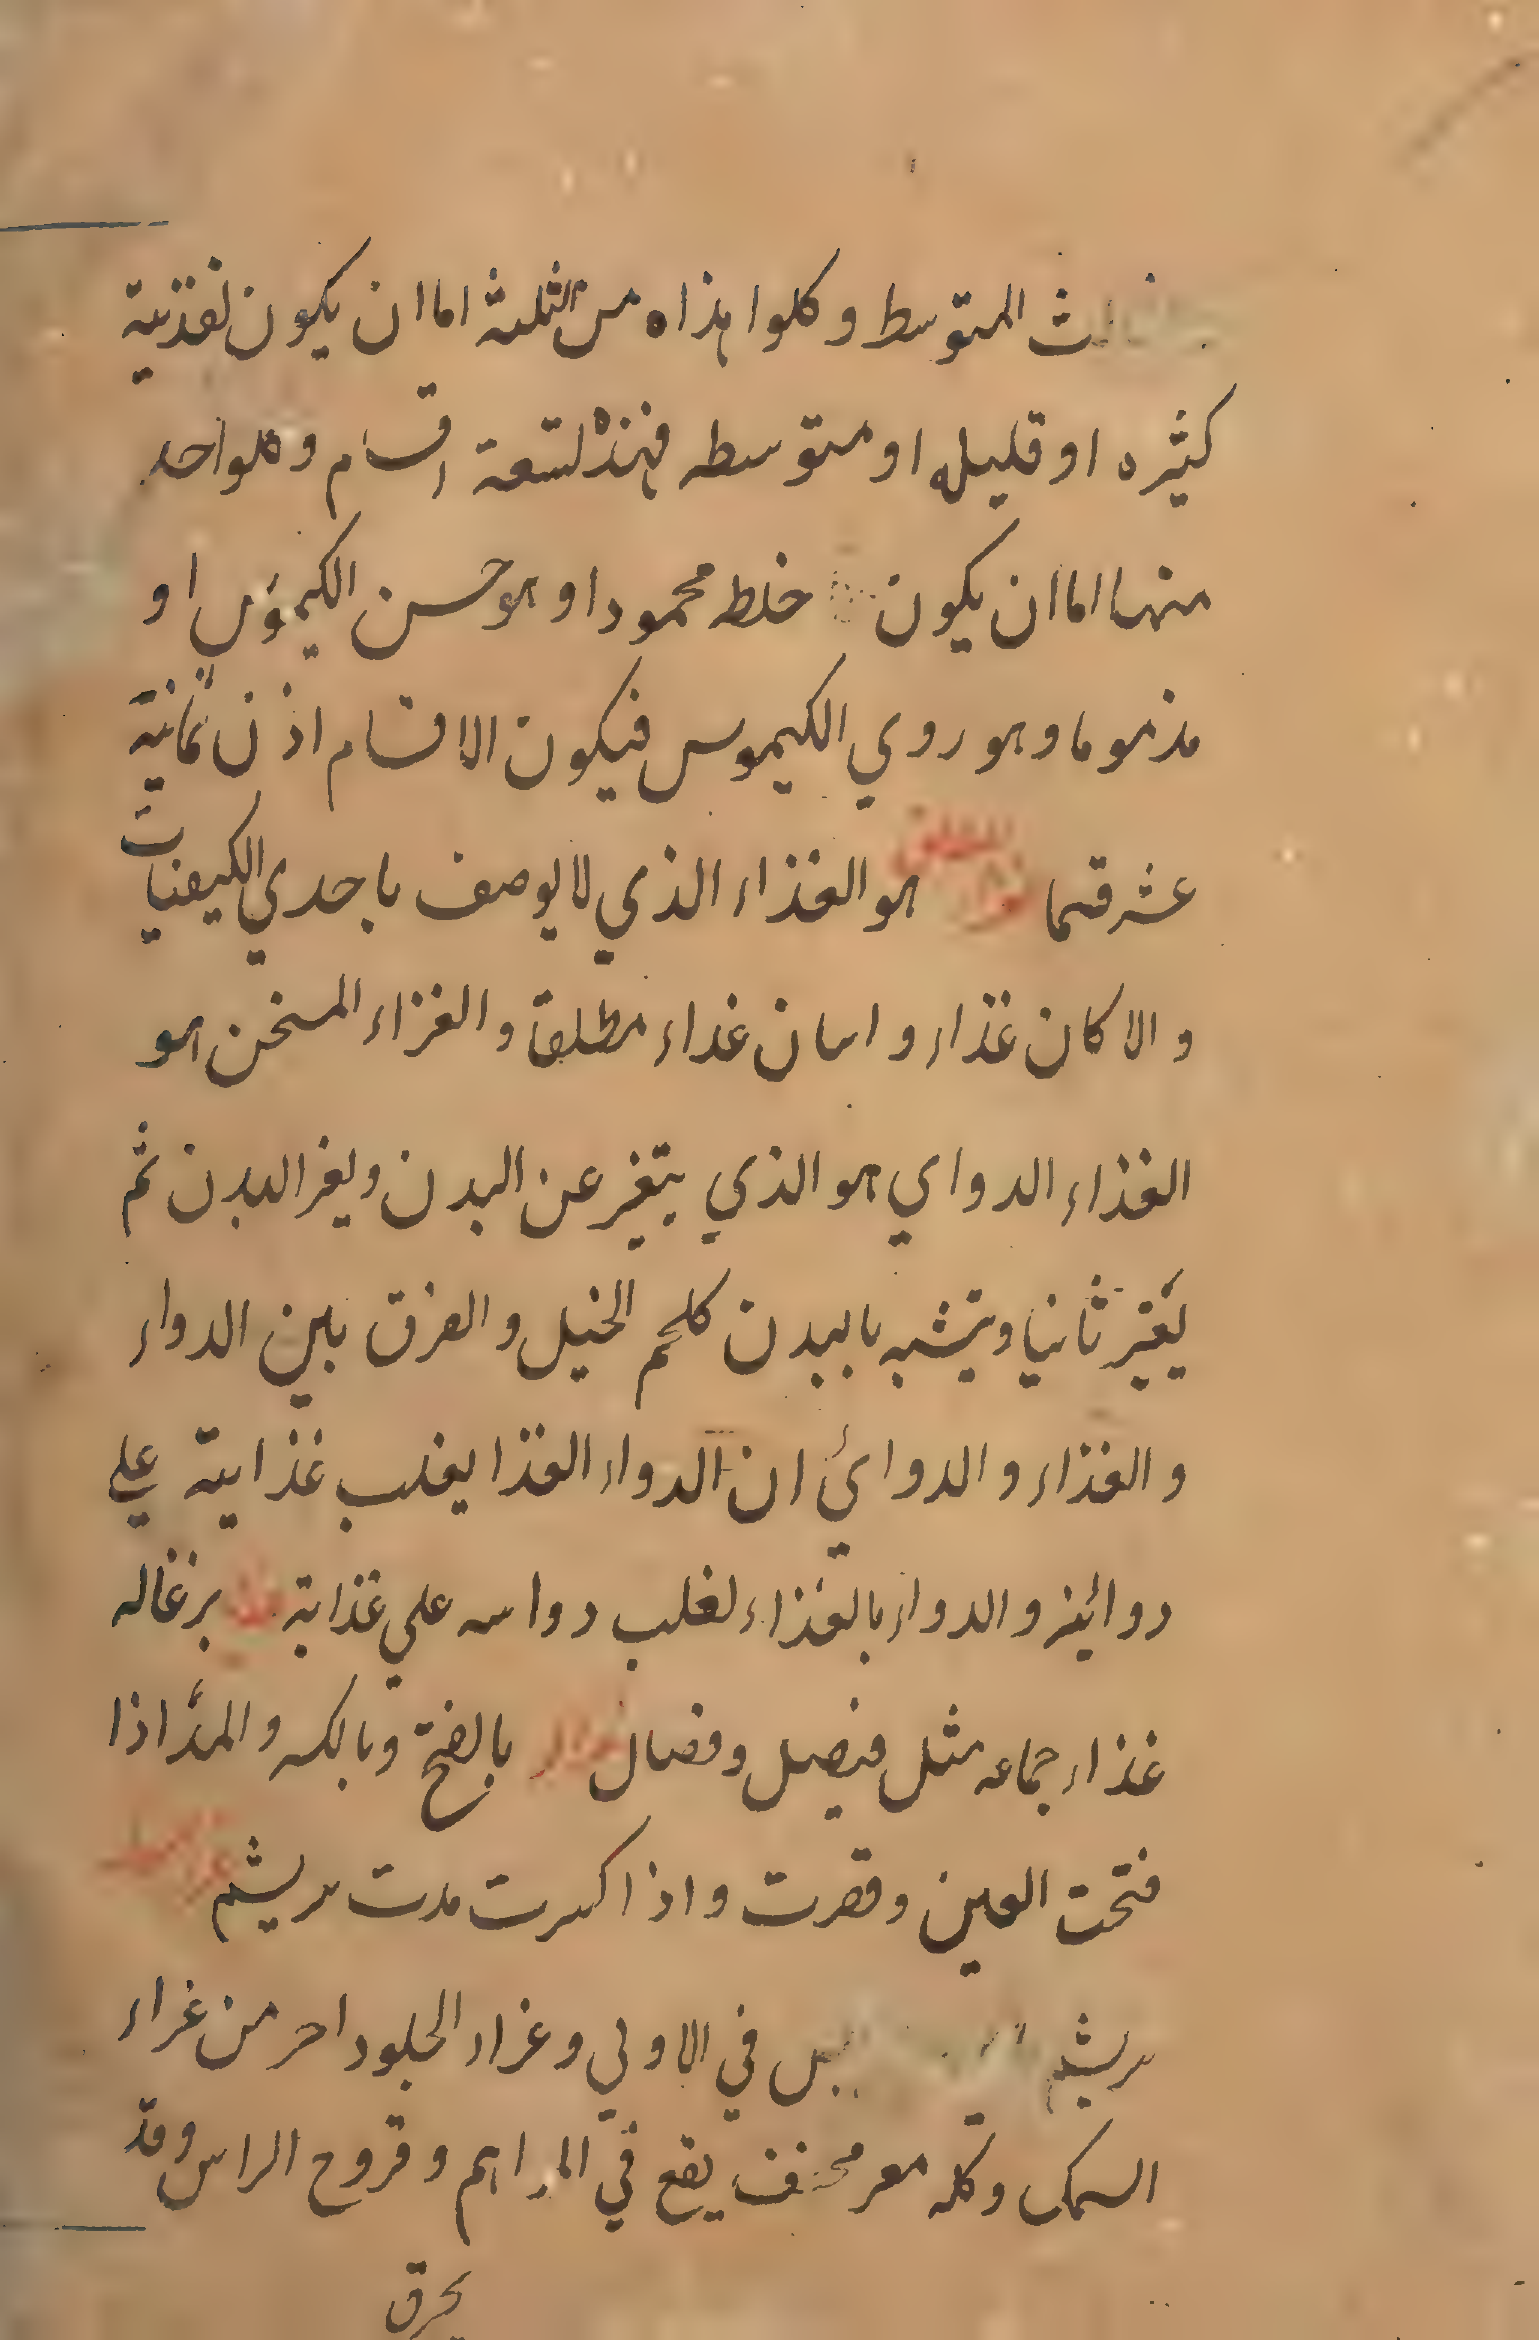 ث المتوسط وكلوا هذاه من الثلثة اما ان يكون تغذيية
كثيره او قليله او متوسطه فهذه تسعة اقسام وكلواحد
منها اما ان يكون خلطه محمودا وهو حسن الكيموس او
مذموما وهو روي الكيموس فيكون الاقسام اذن ثمانية
عشر قسما هو الغذاء الذي لا يوصف باحدي الكيفيات
والا كان غذاء و اسان غداء مطلقا والغزاء المسخن هو
الغذاء الدواي هو الذي يتغير عن البدن ويغر البدن ثم
يغير ثانيا ويتشبه بالبدن كلحم الخيل والفرق بين الدواء
والغذاء والدوائ ان الدواء الغذا يغلب غذايية علي
دوائيه والدواء بالغذاء لغلب دواسه علي غذاية بزغاله
غذاء جماعه مثل فيصل وفصال بالفتح وبالكسر والمد اذا
فتحت العين وقصرت واذا كسرت مدت سريشم
سريشم في الاولي وغراء الجلود احر من غراء
السمك وكله مغر مجفف يقع في المراهم وقروح الراس وقد
يحرق